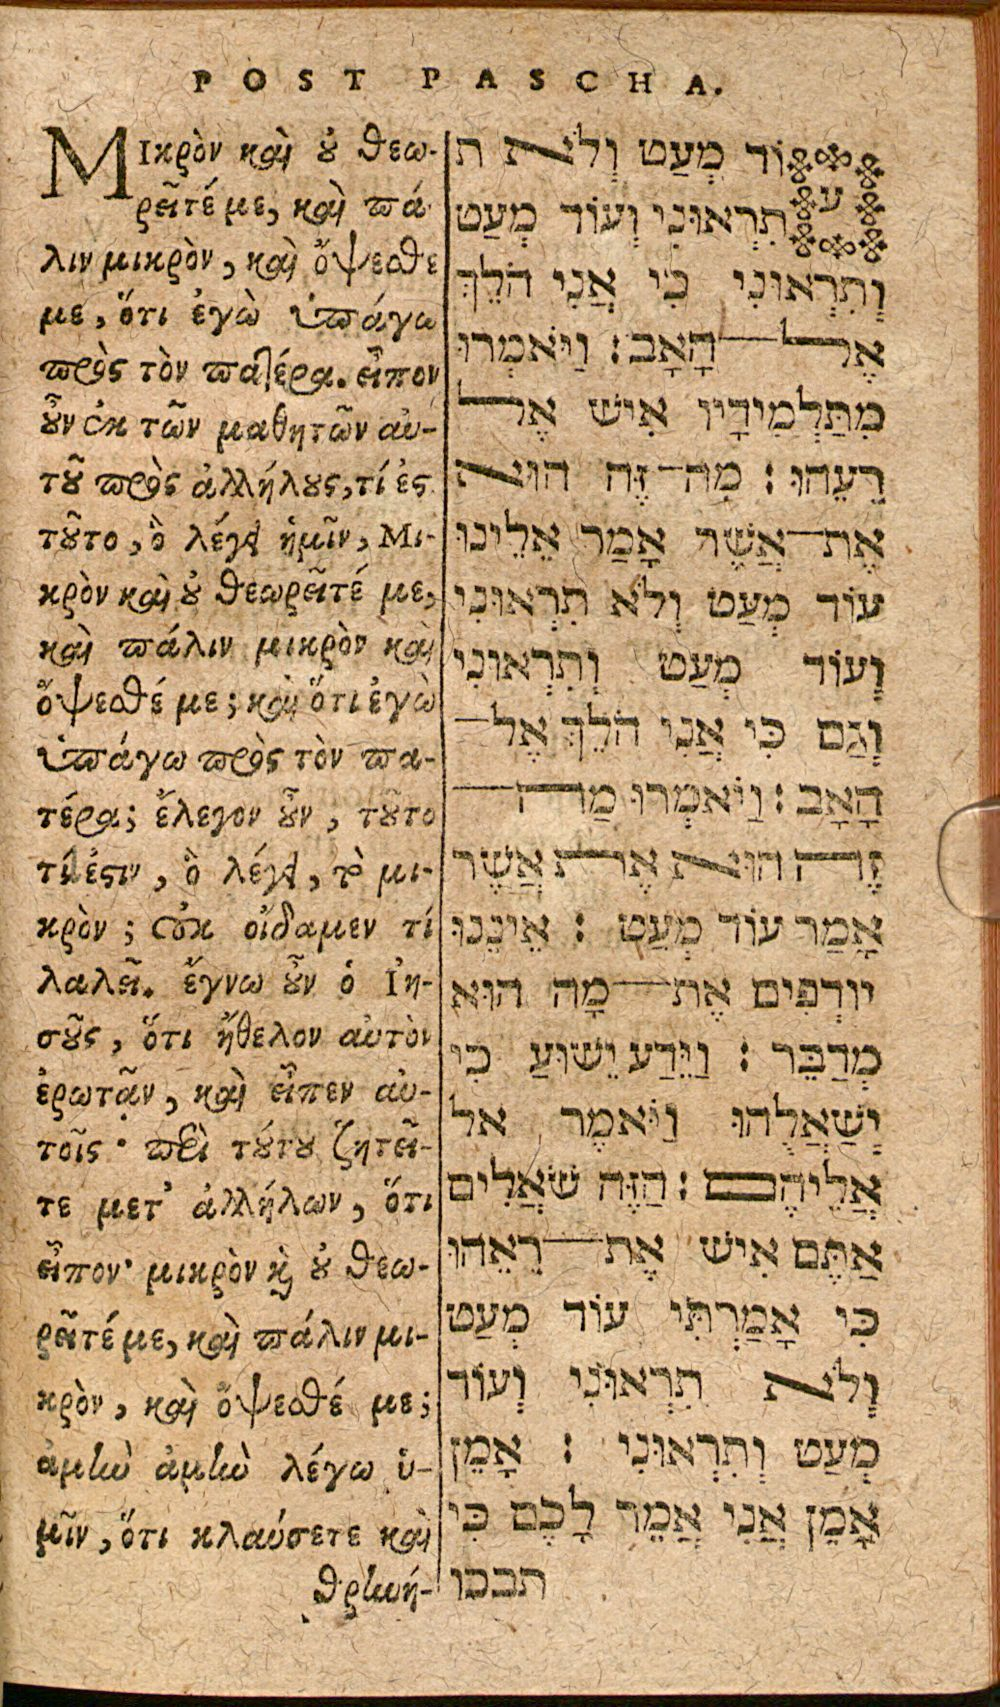 POST PASCHA.
ΜΙκρὸν καὶ ȣ̓ θεω-
ρεῖτέ με, καὶ πά-
λιν μικρὸν, καὶ ὄψεσθε
με, ὅτι ἐγὼ ὑπάγω
πρὸς τὸν πατέρα. εἶπον
ȣ̓͂ν ἐκ τῶν μαθητῶν αὐ-
τȣ͂ πρὸς ἀλλήλȣς, τί ἐς
τȣ͂το, ὃ λέγει ἡμῖν, Μι-
κρὸν καὶ ȣ̓ θεωρεῖτέ με,
καὶ πάλιν μικρὸν καὶ
ὄψεσθέ με; καὶ ὅτι ἐγὼ
ὑπάγω πρὸς τὸν πα-
τέρα; ἔλεγον ȣ̓͂ν, τȣ͂το
τί ἐϛιν, ὃ λέγει, τὸ μι-
κρὸν; ȣ̓κ οἴδαμεν τί
λαλεῖ. ἔγνω ȣ̓͂ν ὁ Ἰη-
σȣ͂ς, ὅτι ἤθελον αὐτὸν
ἐρωτᾷν, καὶ εἶπεν αὐ-
τοῖς· περὶ τȣ́τȣ ζητεῖ-
τε μετ' ἀλλήλων, ὅτι
εἶπον· μικρὸν κὶ ȣ̓ θεω-
ρεῖτέ με, καὶ πάλιν μι-
κρὸν, καὶ ὄψεσθέ με;
ἀμὴν ἀμὴν λέγω ὑ-
μῖν, ὅτι κλαύσετε καὶ
θρηνή-
עוֹד מְעַט וְלֹא ת
תִרְאוּנִי וְעוֹד מְעַט
וְתִרְאוּנִי כִּי אֲנִי הֹלֵךְ
אֶל־הָאָב : וַיֹּאמְרוּ
מִתַּלְמִידָיו אִישׁ אֶל
רֵעֵהוּ : מַה־זֶּה הוּא
אֶת־אֲשֶׁר אָמַר אֵלֵינוּ
עוֹד מְעַט וְלֹא תִרְאוּנִי
וְעוֹד מְעַט וְתִרְאוּנִי
וְגַם כִּי אֲנִי הֹלֵךְ אֶל־
הָאָב : וַיֹּאמְרוּ מַה־
זֶה הוּא אֶת אֲשֶׁר
אָמַר עוֹד מְעַט : אֵינֶנּוּ
יוֹדְעִים אֶת־מָה הוּא
מְדַבֵּר : וַיֵּדַע יֵשׁוּעַ כִּי
יִשְׁאֲלֻהוּ וַיֹּאמֶר אל
אֲלֵיהֶם : הַזֶּה שֹׁאֲלִים
אַתֶּם אִישׁ אֶת־רֵאֵהוּ
כִּי אָמַרְתִּי עוֹד מְעַט
וְלֹא תִרְאוּנִי וְעוֹד
מְעַט וְתִרְאוּנִי : אָמֵן
אָמֵן אֲנִי אֹמֵר לָכֶם כִּי
תבכו